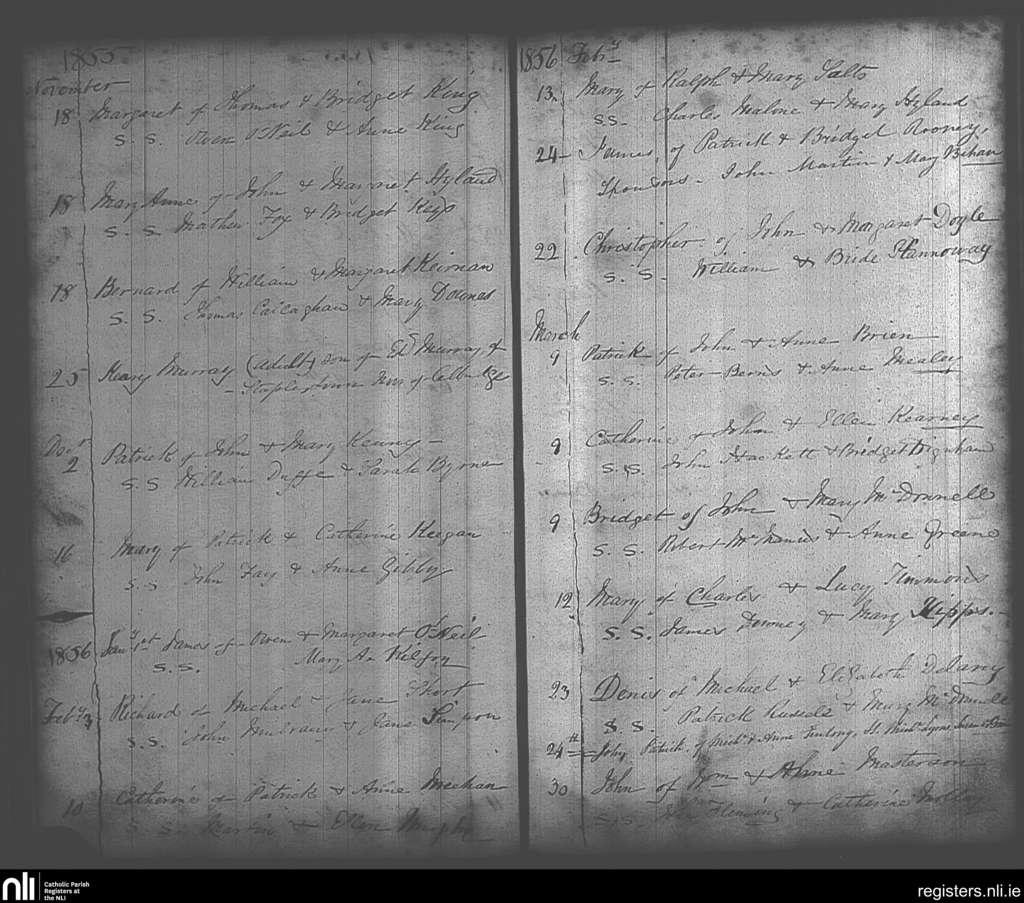 1855
November
18 Margaret of Thomas & Bridget King
S. S. Owen O'Neil & Anne King
18 Mary Anne of John & Margaret Hyland
S. S. Mathew Fox & Bridget Keys
18 Bernard of William & Margaret Keirnan
S. S. Thomas & Mary Downes
25 Henry Murray (adult) son of Ed Murray of
Decr
2 Patrick of John & Mary Kenny -
S. S William Duffe & Sarah Byrne
16 Mary of Patrick & Catherine Keegan
S. S John Fay & Anne Gibby
1856 Jany 1st James of Owen & Margaret O'Neil
S. S. Mary A.
Feby 3 Richard of Michael & Jane Short
S. S. John & Jane Simpson
10 Catherine of Patrick & Anne Meehan
S. S. Martin & Ellen Murphy
1856 Feby
13 Mary of Ralph & Mary Salts
S.S. Charles Malone & Mary Hyland
24 - James of Patrick & Bridget Rooney
Sponsors - John Martin & May Behan
22 Christopher of John & Margaret Doyle
S. S. William & Bride Hannoway
March
9 Patrick of John & Anne Brien
S. S. Peter Berns & Anne Mealey
9 Catherine of John & Ellen Kearney
S. S. John Hackett & Bridget
9 Bridget of John & Mary McDonnell
S. S. Robert McManus & Anne Greene
12 Mary of Charles & Lucy Timmons
S. S. James Downey & Mary Hipps. -
23 Denis of Michael & Elizabeth Delany
S. S. Patrick Russell & Mary McDonnell
24th John Patrick of Michl & Anne
30 John of Wm & Anne Masterson
S. S. Fleming & Catherine
nli
Catholic Parish
Registers at
the NLI
registers.nli.ie